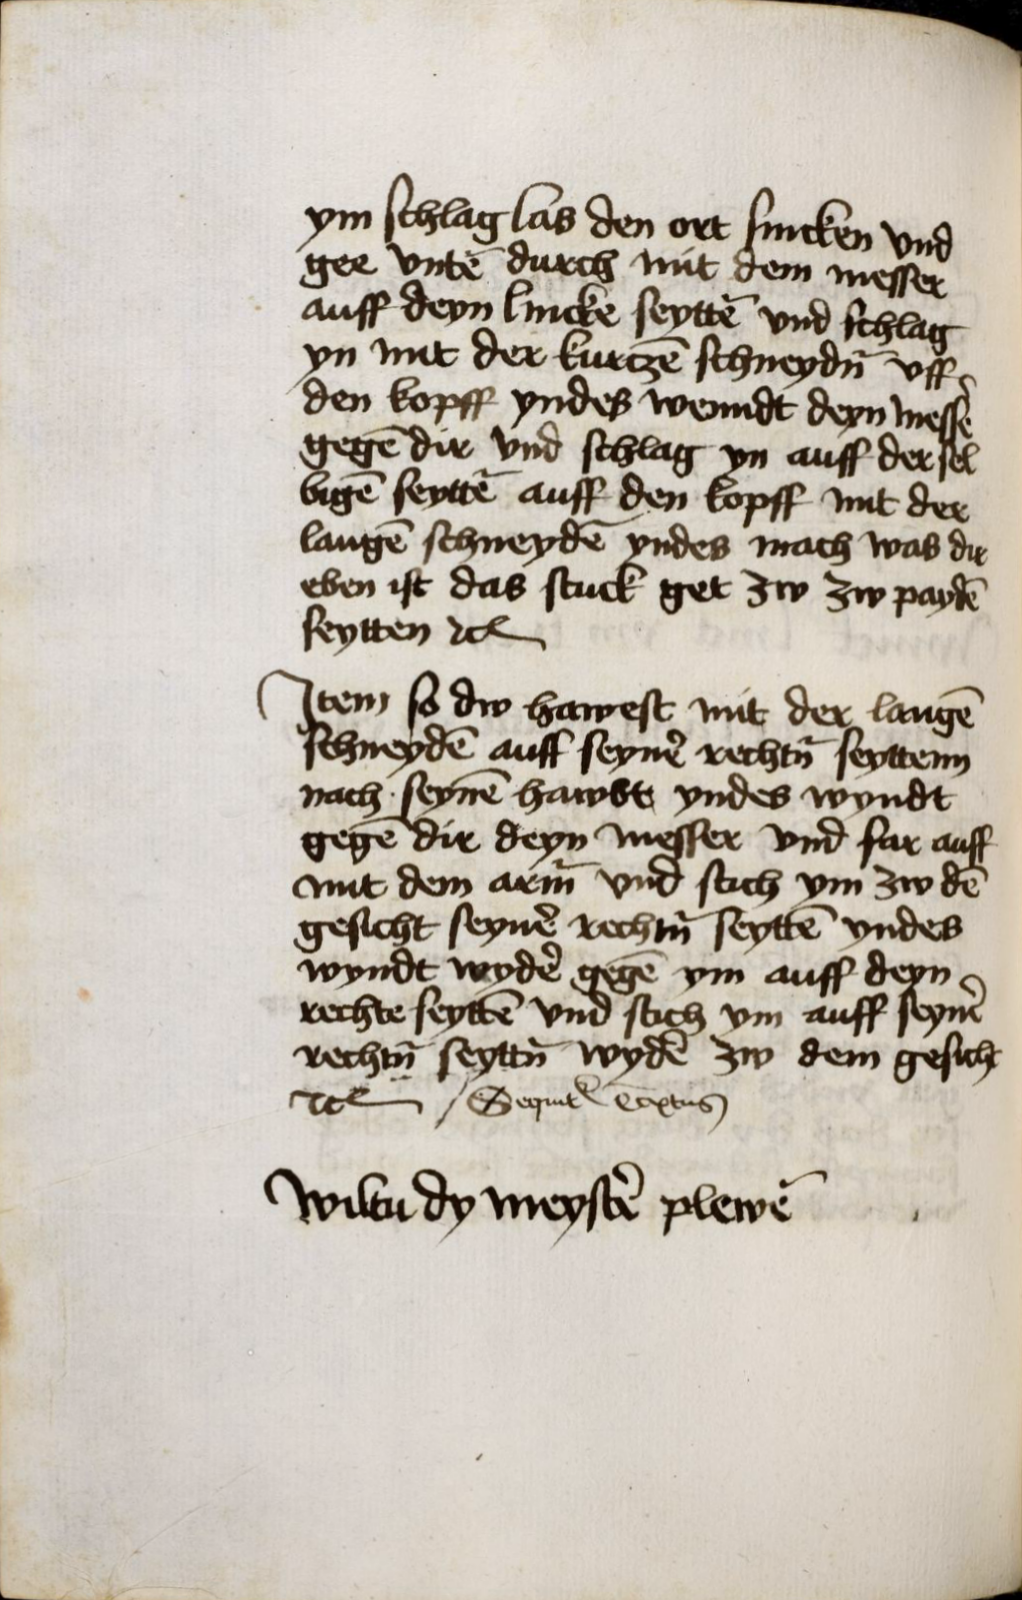 ym schlag las den ort sincken vnd
gee vntē durch mit dem messer
auff deyn lincke seyttē vnd schlag
yn mit der kurczē schneydn̄ vff
den kopff yndes wenndt deyn messẻ
gegē dir vnd schlag yn auff der sel
bigē seyttē auff den kopff mit der
langē schneydē yndes mach was dir
eben ist das stuck get zw zw paydē
seytten ⁊cͣ
Item so dw hawest mit der langē
schneydē auff seynẻ rechtn̄ seyttenn
nach seynē hawbt yndes wyndt
gegē dir deyn messer vnd far auff
mit dem arm̄ vnd stich ym zw dē
gesicht seynẻ rechtn̄ seyttē yndes
wyndt wydẻ gegē ym auff deyn
rechte seyttē vnd stich ym auff seynẻ
rechtn̄ seyttn̄ wydẻ zw dem gesicht
⁊cͣ / Sequit᷑ Textus
Wiltu dy meystẻ plewē